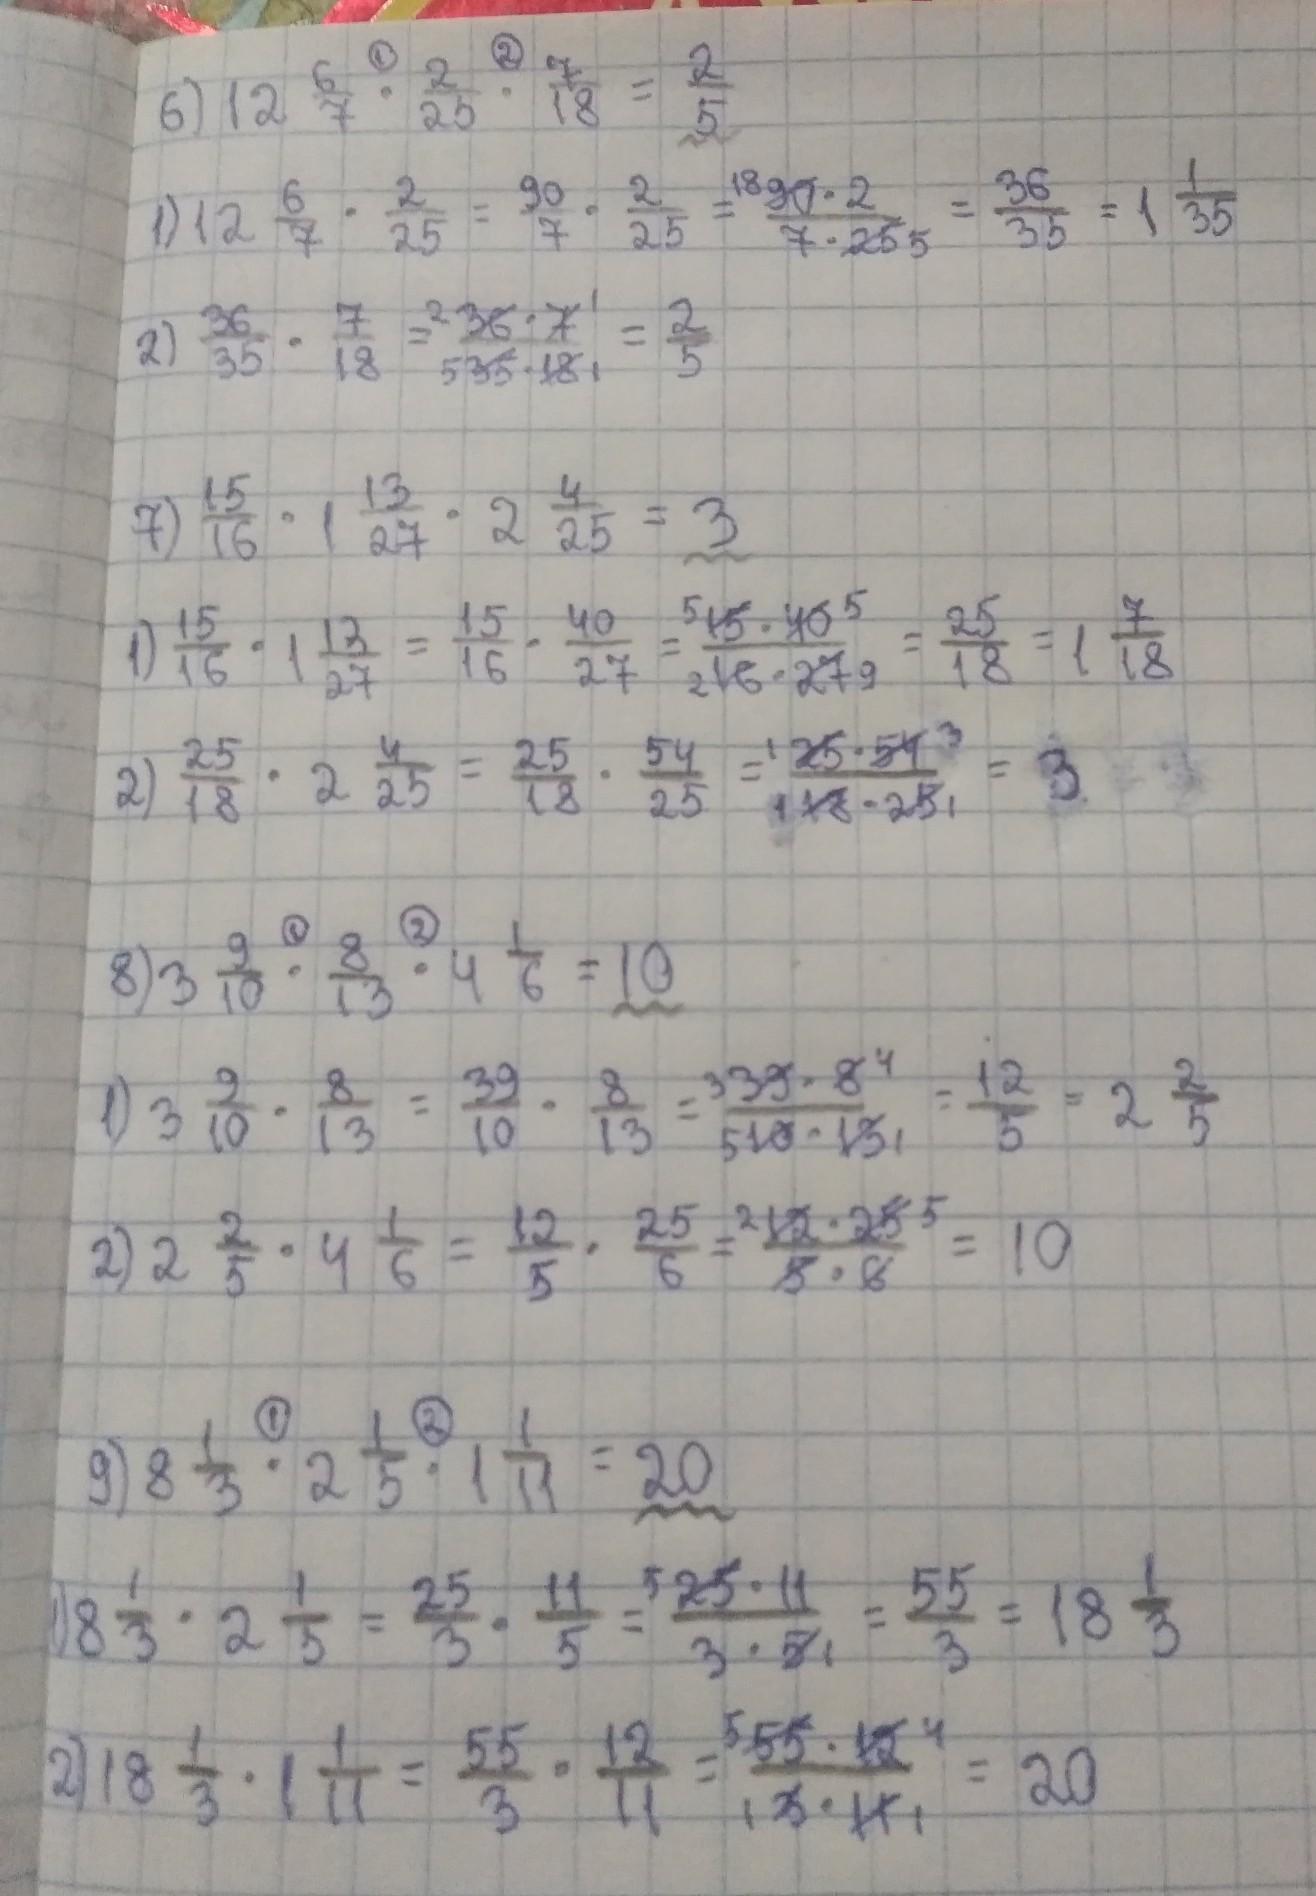 6) 12 6/7 ① · 2/25 ② · 7/18 = 2/5
1) 12 6/7 · 2/25 = 90/7 · 2/25 = 18 90 · 2 / 7 · 25 5 = 36/35 = 1 1/35
2) 36/35 · 7/18 = 2 36 · 7 1 / 5 35 · 18 1 = 2/5
7) 15/16 · 1 13/27 · 2 4/25 = 3
1) 15/16 · 1 13/27 = 15/16 · 40/27 = 5 15 · 40 5 / 2 16 · 27 9 = 25/18 = 1 7/18
2) 25/18 · 2 4/25 = 25/18 · 54/25 = 1 25 · 54 3 / 1 18 · 25 1 = 3
8) 3 9/10 ① · 8/13 ② · 4 1/6 = 10
1) 3 9/10 · 8/13 = 39/10 · 8/13 = 3 39 · 8 4 / 5 10 · 13 1 = 12/5 = 2 2/5
2) 2 2/5 · 4 1/6 = 12/5 · 25/6 = 2 12 · 25 5 / 5 · 6 = 10
9) 8 1/3 ① · 2 1/5 ② · 1 1/11 = 20
1) 8 1/3 · 2 1/5 = 25/3 · 11/5 = 5 25 · 11 / 3 · 5 1 = 55/3 = 18 1/3
2) 18 1/3 · 1 1/11 = 55/3 · 12/11 = 5 55 · 12 4 / 1 3 · 11 1 = 20